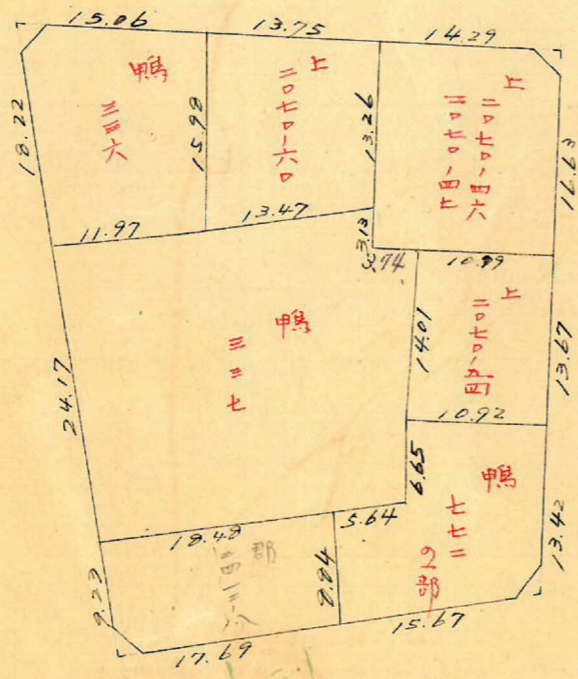 15.06
13.75
14.29
18.22
鴨
三三六
15.98
上
二〇七〇ノ六〇
13.26
上
二〇七〇ノ四六
二〇七〇ノ四七
16.63
11.97
13.47
3.13
3.74
10.99
鴨
三三七
14.01
上
二〇七〇ノ五四
13.67
24.17
10.92
6.65
鴨
七七二
の部
13.42
18.48
5.64
郡
9.23
8.84
15.67
17.69